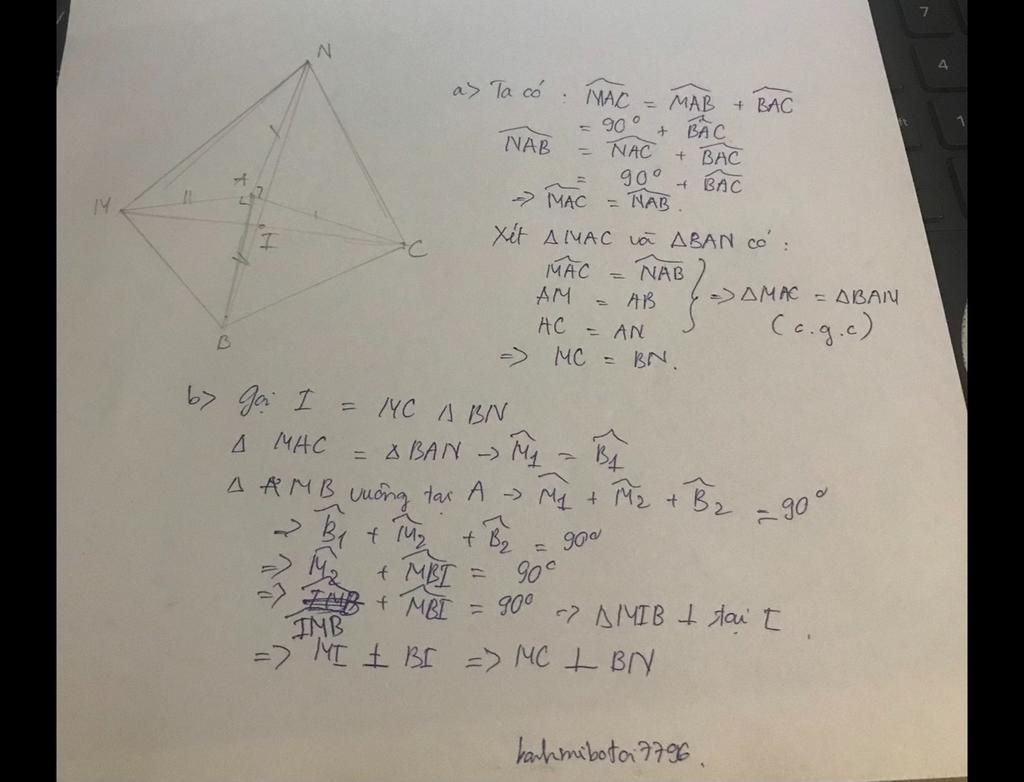 N
A
M
I
C
B
a> Ta có : MAC = MAB + BAC
= 90° + BAC
NAB = NAC + BAC
= 90° + BAC
=> MAC = NAB.
Xét ΔMAC và ΔBAN có :
MAC = NAB
AM = AB
AC = AN
=> ΔMAC = ΔBAN
(c.g.c)
=> MC = BN.
b> Gọi I = MC ∩ BN
Δ MAC = ΔBAN -> M1 = B1
Δ AMB vuông tại A -> M1 + M2 + B2 = 90°
-> B1 + M2 + B2 = 90°
=> M2 + MBI = 90°
=> IMB + MBI = 90° -> ΔMIB ⊥ tại I.
=> MI ⊥ BI => MC ⊥ BN
banhmibotoi7796.